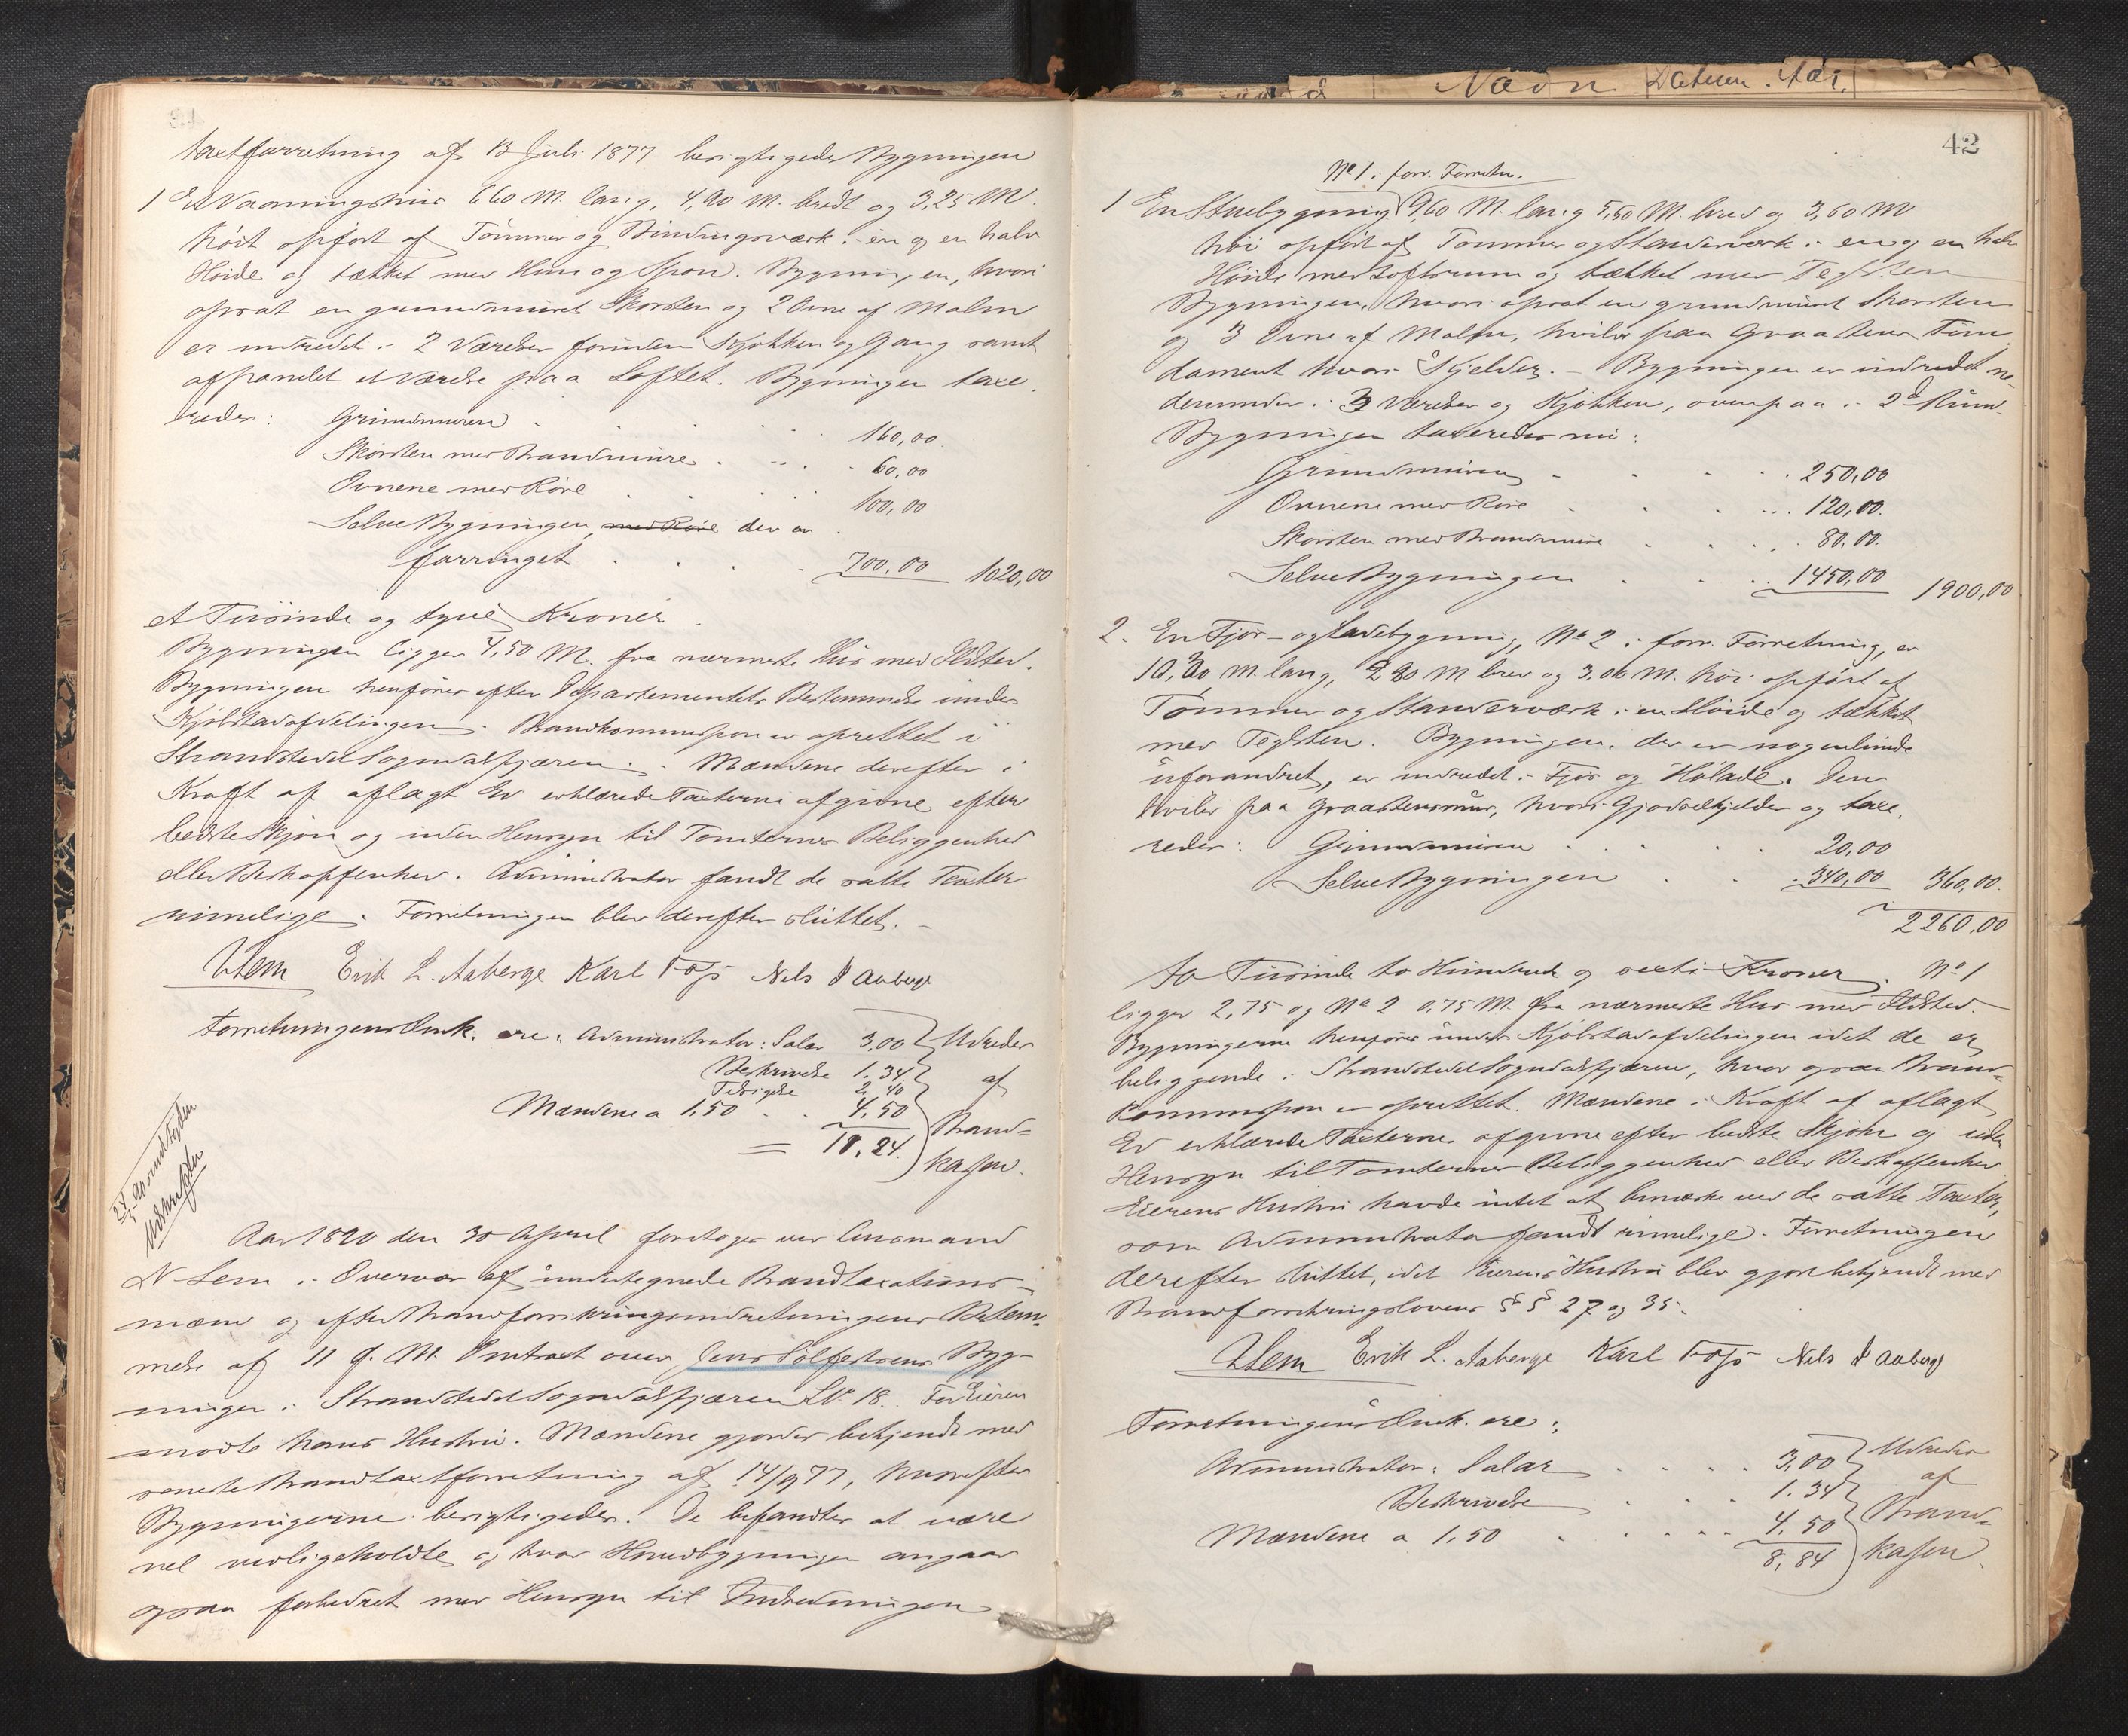 taxtforretning af 13 Juli 1877 berigtigedes Bygningen
1 Et Vaaningshus 6,60 M. lang, 4,90 M. bredt og 3,25 M.
høit opført af Tømmer og Bindingsværk i en og en halv
Høide og tækket med Hun og Spon. Bygningen, hvori
opsat en grundmuret Skorsten og 2 Ovne af Malm
er indredet i 2 Værelser foruden Kjøkken og Gang samt
afpanelet et Værelse paa Loftet. Bygningen taxe-
redes: Grundmuren 160,00
Skorsten med Brandmure 60,00
Ovnene med Rør 100,00
Selve Bygningen, med Rør der er
forringet 700,00 1020,00
Et Tusinde og tyve Kroner
Bygningen ligger 4,50 M. fra nærmeste Hus med Ildsted.
Bygningen henføres efter Departementets Bestemmelse under
Kjøbstadafdelingen. Brandkommission er oprettet i
Strandstedet Sogndalsfjæren. Mændene derefter i
Kraft af aflagt Ed erklærede Taxterne afgivne efter
bedste Skjøn og uden Hensyn til Tomternes Beliggenhed
eller Beskaffenhed. Administrator fandt de satte Taxter
rimelige. Forretningen blev derefter sluttet.
NSem Erik L. Aaberge Karl Foss Nils J Aaberge
Forretningens Omk. ere: Administrator: Salær 3,00 Udredes
Beskrivelse 1.34 af
Tilsigelse 2,40
Mændene a 1,50 4,50 Brand-
= 11.24. kassen.
24/5 90 indstyden
Udskrifter
Aar 1890 den 30 April foretoges ved Lensmand
N Sem i Overvær af undertegnede Brandtaxations-
mænd og efter Brandforsikringsindretningens Bestem-
melse af 11 d. M. Omtaxt over Jens Sølfestsens Byg-
ninger i Strandstedet Sogndalsfjæren LNo 18. For Eieren
mødte hans Hustru. Mændene gjordes bekjendt med
seneste Brandtaxtforretning af 14/9 77, hvorefter
Bygningerne berigtigedes. De befandtes at være
vel vedligeholdte og hvad Hovedbygningen angaar
ogsaa forbedret med Hensyn til Indredningen
42
No 1 i forr. Forretn.
1 En Stuebygning 9,60 M. lang 5,50 M. bred og 3,60 M
høi opført af Tømmer og Stavverværk i en og en halv
Høide med Loftsrum og tækket med Teglsten
Bygningen, hvori opsat en grundmuret Skorsten
og 3 Ovne af Malm, hviler paa Graastens Fun-
dament hvori Kjelder. - Bygningen er indredet ne-
denunder i 3 Værelser og Kjøkken, ovenpaa i 2de Rum.
Bygningen taxeredes nu:
Grundmuren 250,00
Ovnene med Rør 120,00.
Skorsten med Brandmure 80.00.
Selve Bygningen 1450,00 1900,00
2. En Fjøs- og Ladebygning, No 2 i forr. Forretning, er
M. lang, M bred og 3,00 M. høi opført af
Tømmer og Stavverværk i en Høide og tækket
med Teglsten. Bygningen, der er nogenlunde
uforandret, er indredet i Fjøs og Hølade. Den
hviler paa Graastensmur, hvori Gjødselkjelder og taxe-
redes: Grundmuren 20,00
Selve Bygningen 340,00 360,00.
2260.00
to Tusinde to Hundrede og sexti Kroner. No 1
ligger 2,75 og No 2 0,75 M. fra nærmeste Hus med Ildsted.
Bygningerne henføres under Kjøbstadafdelingen idet de er
beliggende i Strandstedet Sogndalsfjæren, hvor ogsaa Brand-
kommission er oprettet. Mændene i Kraft af aflagt
Ed erklærede Taxterne afgivne efter bedste Skjøn og uden
Hensyn til Tomternes Beliggenhed eller Beskaffenhed.
Eierens Hustru havde intet at bemærke ved de satte Taxter,
som Administrator fandt rimelige. Forretningen
derefter sluttet, idet Eierens Hustru blev gjort bekjendt med
Brandforsikringslovens § § 27 og 35.
NSem Erik L. Aaberge Karl Foss Nils J Aaberge
Forretningens Omk. ere:
Administrator: Salær 3,00 Udredes
Beskrivelse 1.34 af
Mændene a 1,50 4,50 Brand-
8,84 kassen.
Navn Datum. Aar.